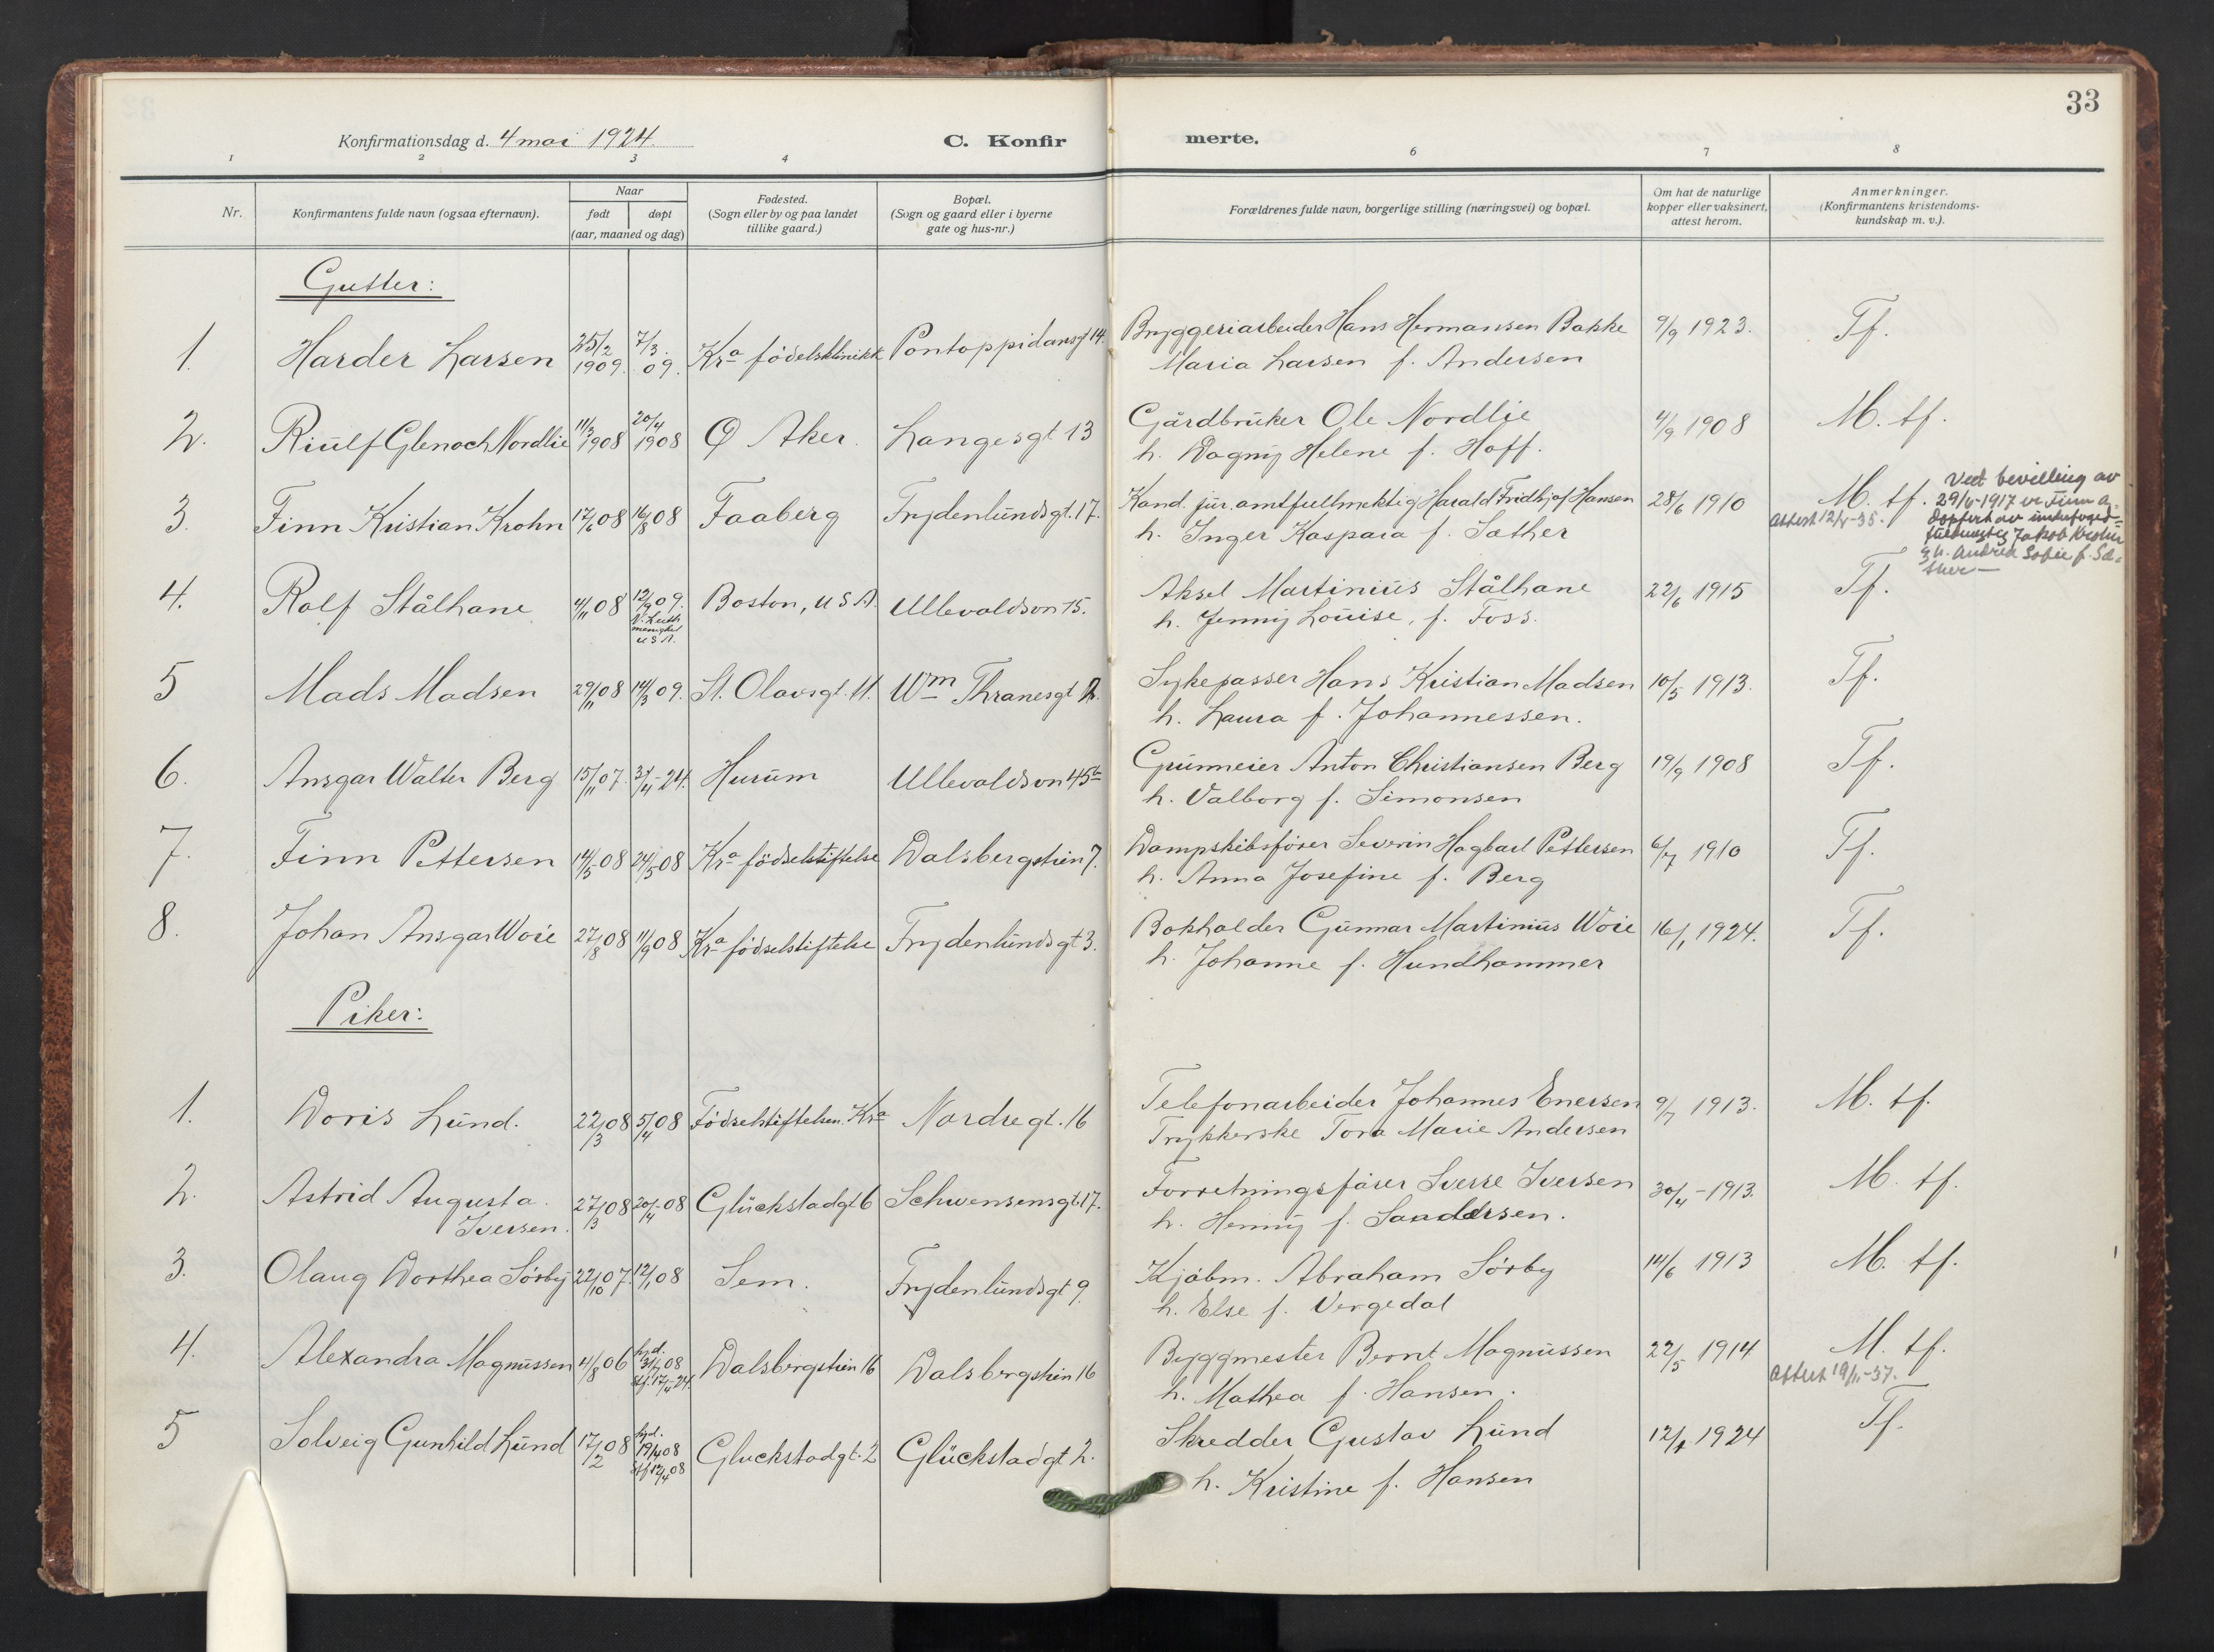 33
Konfirmationsdag d. 4 mai 1924.
C. Konfir merte.
1 2 3 4 6 7 8
Nr.
Konfirmantens fulde navn (ogsaa efternavn).
Naar
født døpt
(aar, maaned og dag)
Fødested.
(Sogn eller by og paa landet
tillike gaard.)
Bopæl.
(Sogn og gaard eller i byerne
gate og hus-nr.)
Forældrenes fulde navn, borgerlige stilling (næringsvei) og bopæl.
Om hat de naturlige
kopper eller vaksinert,
attest herom.
Anmerkninger.
(Konfirmantens kristendoms-
kundskap m. v.).
Gutter:
1. Harder Larsen 25/2 1909. 7/3 09. Kra fødelsklinikk Pontoppidansgt 14. Bryggeriarbeider Hans Hermansen Bakke 9/9 1923. Tf.
Maria Larsen f. Andersen
2. Riulf Glenoch Nordlie 11/3 1908 20/4 1908 Ø Aker. Langesgt 13 Gårdbruker Ole Nordlie 4/9 1908 M. tf.
h. Dagny Helene f. Hoff.
3. Finn Kristian Krohn 17/6 08 16/8 08 Faaberg Frydenlundsgt. 17. Kand. jur. amtfullmektig Harald Fridtjof Hansen 28/6 1910 M. tf.
h. Inger Kaspara f. Sæther
Attest 12/5-35.
Ved bevilling av
29/5-1917 er Finn a-
doptert av underfoged-
fuldmegtig Jakob Krohn
g h. Andrea Sofie f. Sæ-
ther —
4. Rolf Stålhane 4/11 08 12/9 09. Boston, U S A. Ullevoldsvn 15. Aksel Martinius Stålhane 22/6 1915 Tf.
menighet
U S A.
h. Jenny Louise, f. Foss.
5 Mads Madsen 29/11 08 14/3 09. St. Olavsgt. 11. Wm Thranesgt 2. Sykepasser Hans Kristian Madsen 10/5 1913. Tf.
h. Laura f. Johannessen.
6. Ansgar Walter Berg 15/11 07. 3/4-24. Hurum Ullevoldsvn 45b Grünmeier Anton Christiansen Berg 19/9 1908 Tf.
h. Valborg f. Simonsen
7. Finn Pettersen 14/5 08 24/5 08 Kra fødselstiftelse Dalsbergstien 7. Dampskibsfører Severin Hagbart Pettersen 6/7 1910 Tf.
h. Anna Josefine f. Berg
8. Johan Ansgar Woie 27/8 08 11/9 08 Kra fødselstiftelse Frydenlundsgt 3. Bokholder Gunnar Martinius Woie 16/1 1924. Tf.
h. Johanne f. Hundhammer
Piker:
1. Doris Lund. 22/3 08 5/4 08 Fødselstiftelsen. Kra Nordregt. 16 Telefonarbeider Johannes Enersen 9/7 1913. M. tf.
Trykkerske Tora Marie Andersen
2. Astrid Augusta 27/3 08 20/4-08 Glückstadgt 6 Schwensensgt. 17. Forretningsfører Sverre Iversen 30/4-1913. M. tf.
Iversen.
h. Henny f. Saadersen.
3. Olaug Dorthea Sørby 22/10 07. 12/1 08 Sem. Frydenlundsgt 9. Kjøbm. Abraham Sørby 14/6 1913 M. tf.
h. Else f. Vergedal
4. Alexandra Magnussen 4/8 06 hjd. 31/7 08 Dalsbergstien 16 Dalsbergstien 16 Byggmester Bernt Magnussen 22/5 1914 M. tf.
Stf. 17/4-24.
h. Mathea f. Hansen.
Attest 19/11-37.
5 Solveig Gunhild Lund 17/2 08 hjd. 19/4 08 Gluckstadgt. 2 Glückstadgt 2. Skredder Gustav Lund 12/1 1924 Tf.
Stf 12/4 08
h. Kristine f. Hansen